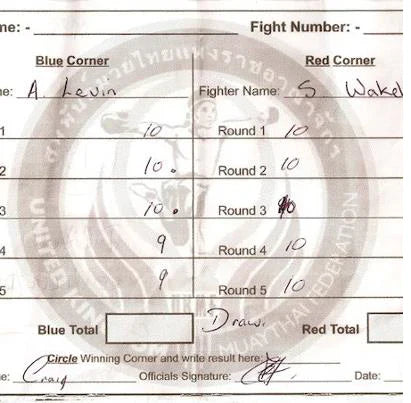 me: - Fight Number: -
Blue Corner Red Corner
ne: A. Levin Fighter Name: S Wakel
1 10 Round 1 10
2 10. Round 2 10
3 10. Round 3 10
4 9 Round 4 10
5 9 Round 5 10
Blue Total Draw. Red Total
Circle Winning Corner and write result here:
ge: Craig Officials Signature: Date:
สหพันธ์มวยไทยแห่งราชอาณาจักร
UNITED KINGDOM MUAYTHAI FEDERATION